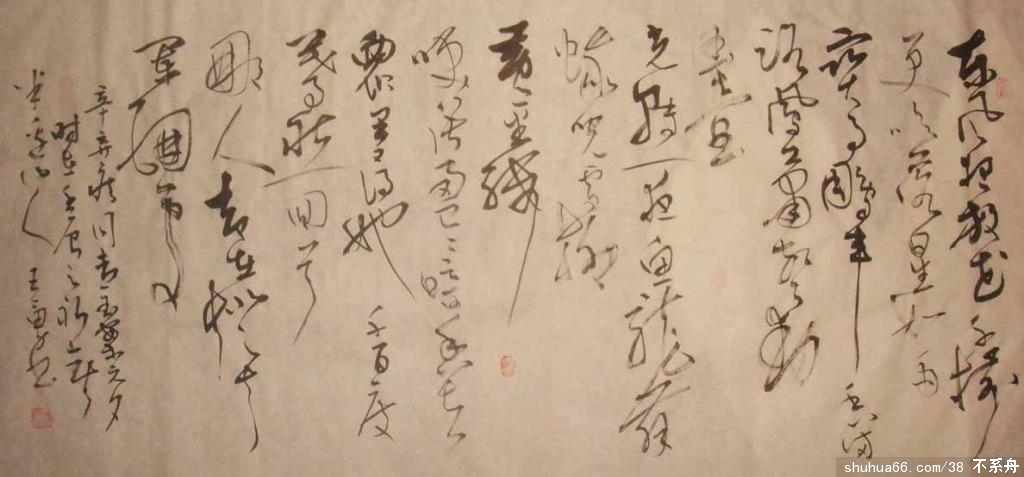 东风夜放花千树
更吹落星如雨
宝马雕车香满
路凤箫声动
玉壶
光转一夜鱼龙舞
蛾儿雪柳
黄金缕
笑语盈盈暗香去
众里寻他千百度
蓦然回首
那人却在灯火
阑珊处
辛弃疾词青玉案元夕
时在壬辰之秋
王 书
shuhua66.com/38 不系舟